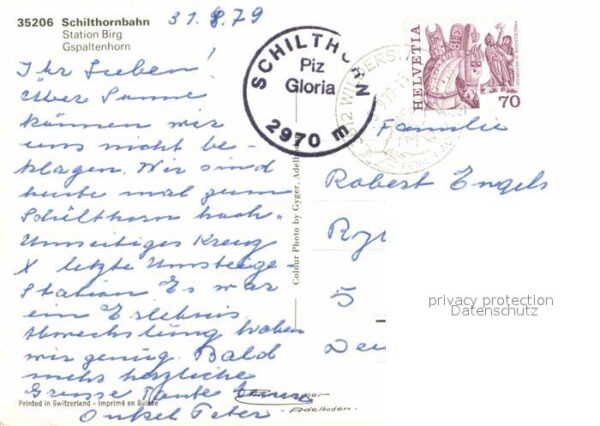 35206 Schilthornbahn
Station Birg
Gspaltenhorn
31.8.79
Ihr Lieben!
Über Sonne
können wir
uns nicht be-
klagen. Wir sind
heute mal zum
Schilthorn hoch.
Umseitiges Kreuz
X letzte Umsteige-
Station Es war
ein Erlebnis
Abwechslung haben
wir genug. Bald
mehr herzliche
Grüsse Tante
Onkel Peter
Printed in Switzerland - Imprimé en Suisse
Adelboden
SCHILTHORN
Piz
Gloria
2970 m
Colour Photo by Gyger, Adelboden
HELVETIA
70
Familie
Robert Engels
5
privacy protection
Datenschutz